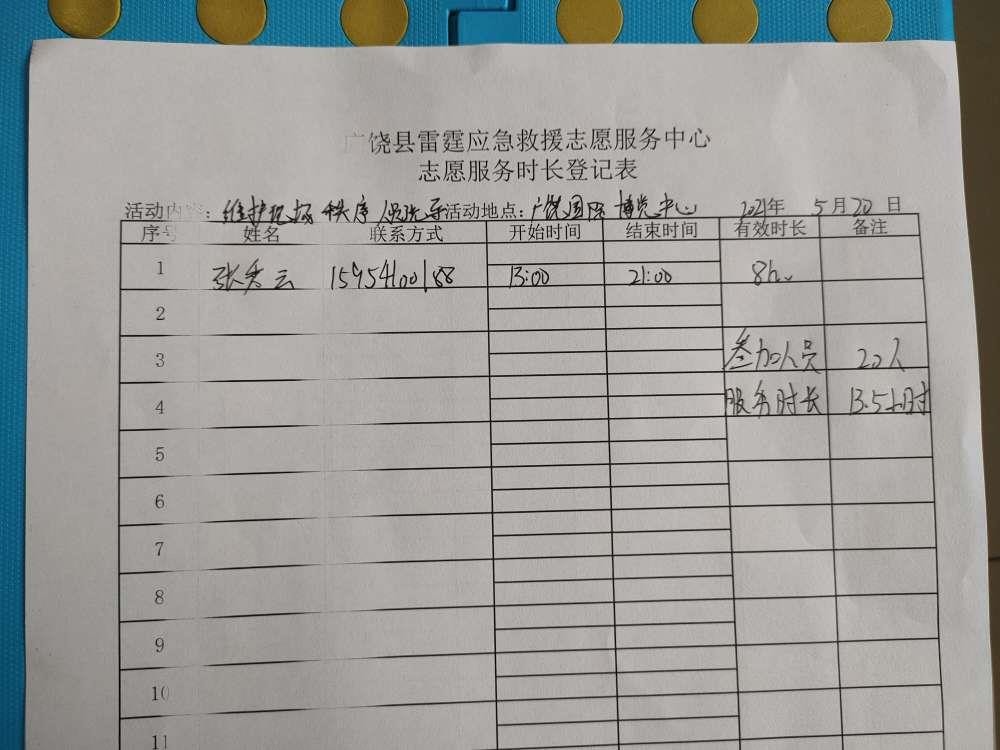 广饶县雷霆应急救援志愿服务中心
志愿服务时长登记表
活动内容：维护现场 秩序 人员疏导 活动地点：广饶国际 博览中心 2021年 5月20日
序号 姓名 联系方式 开始时间 结束时间 有效时长 备注
1 张秀云 15954100188 13:00 21:00 8h
2
3 参加人员 20人
4 服务时长 13.5小时
5
6
7
8
9
10
11